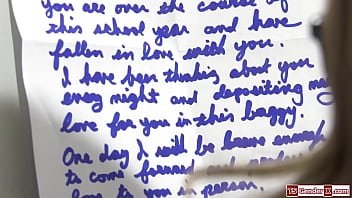 you are over the course of
this school year and have
fallen in love with you.
I have been thinking about you
every night and depositing my
love for you in this baggy.
One day I will be brave enough
to come forward and
love to you in person.